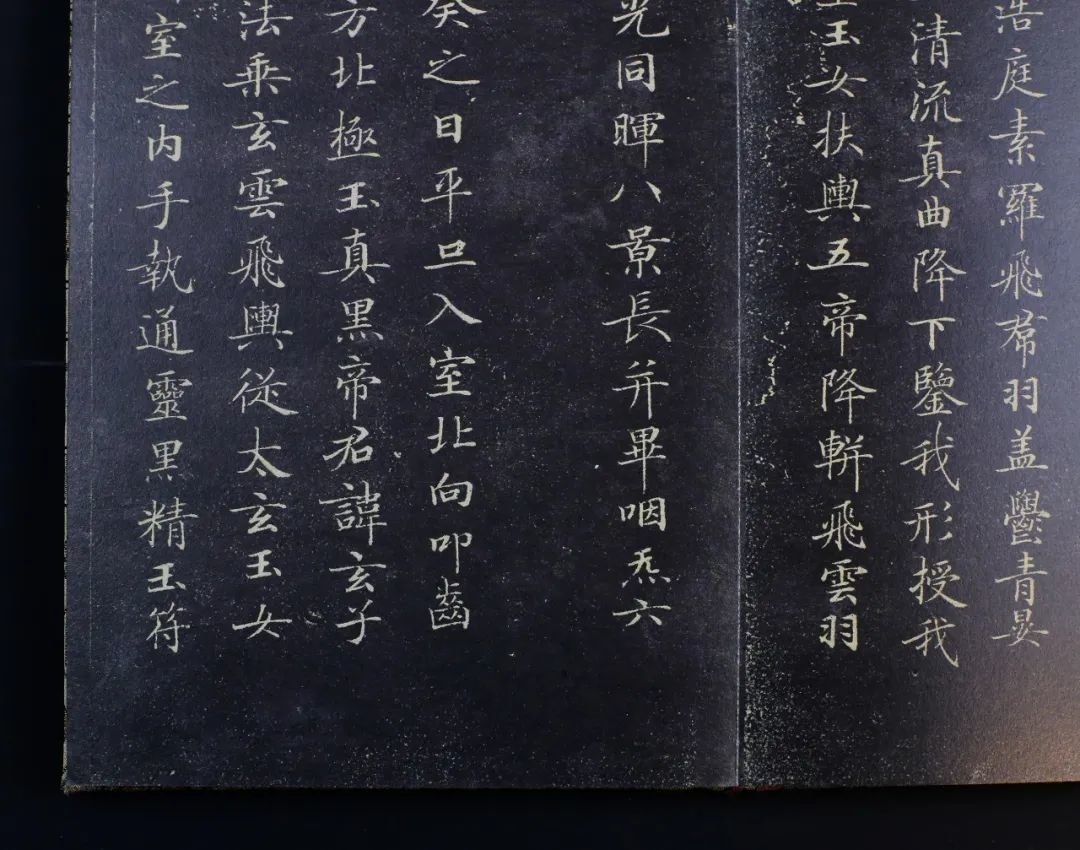 浩庭素羅飛帬羽盖鬱青晏
清流真曲降下鑒我形授我
玉女扶輿五帝降軿飛雲羽
光同暉八景長并畢咽炁六
癸之日平旦入室北向叩齒
方北極玉真黑帝君諱玄子
法乘玄雲飛輿從太玄玉女
室之内手執通靈黑精玉符